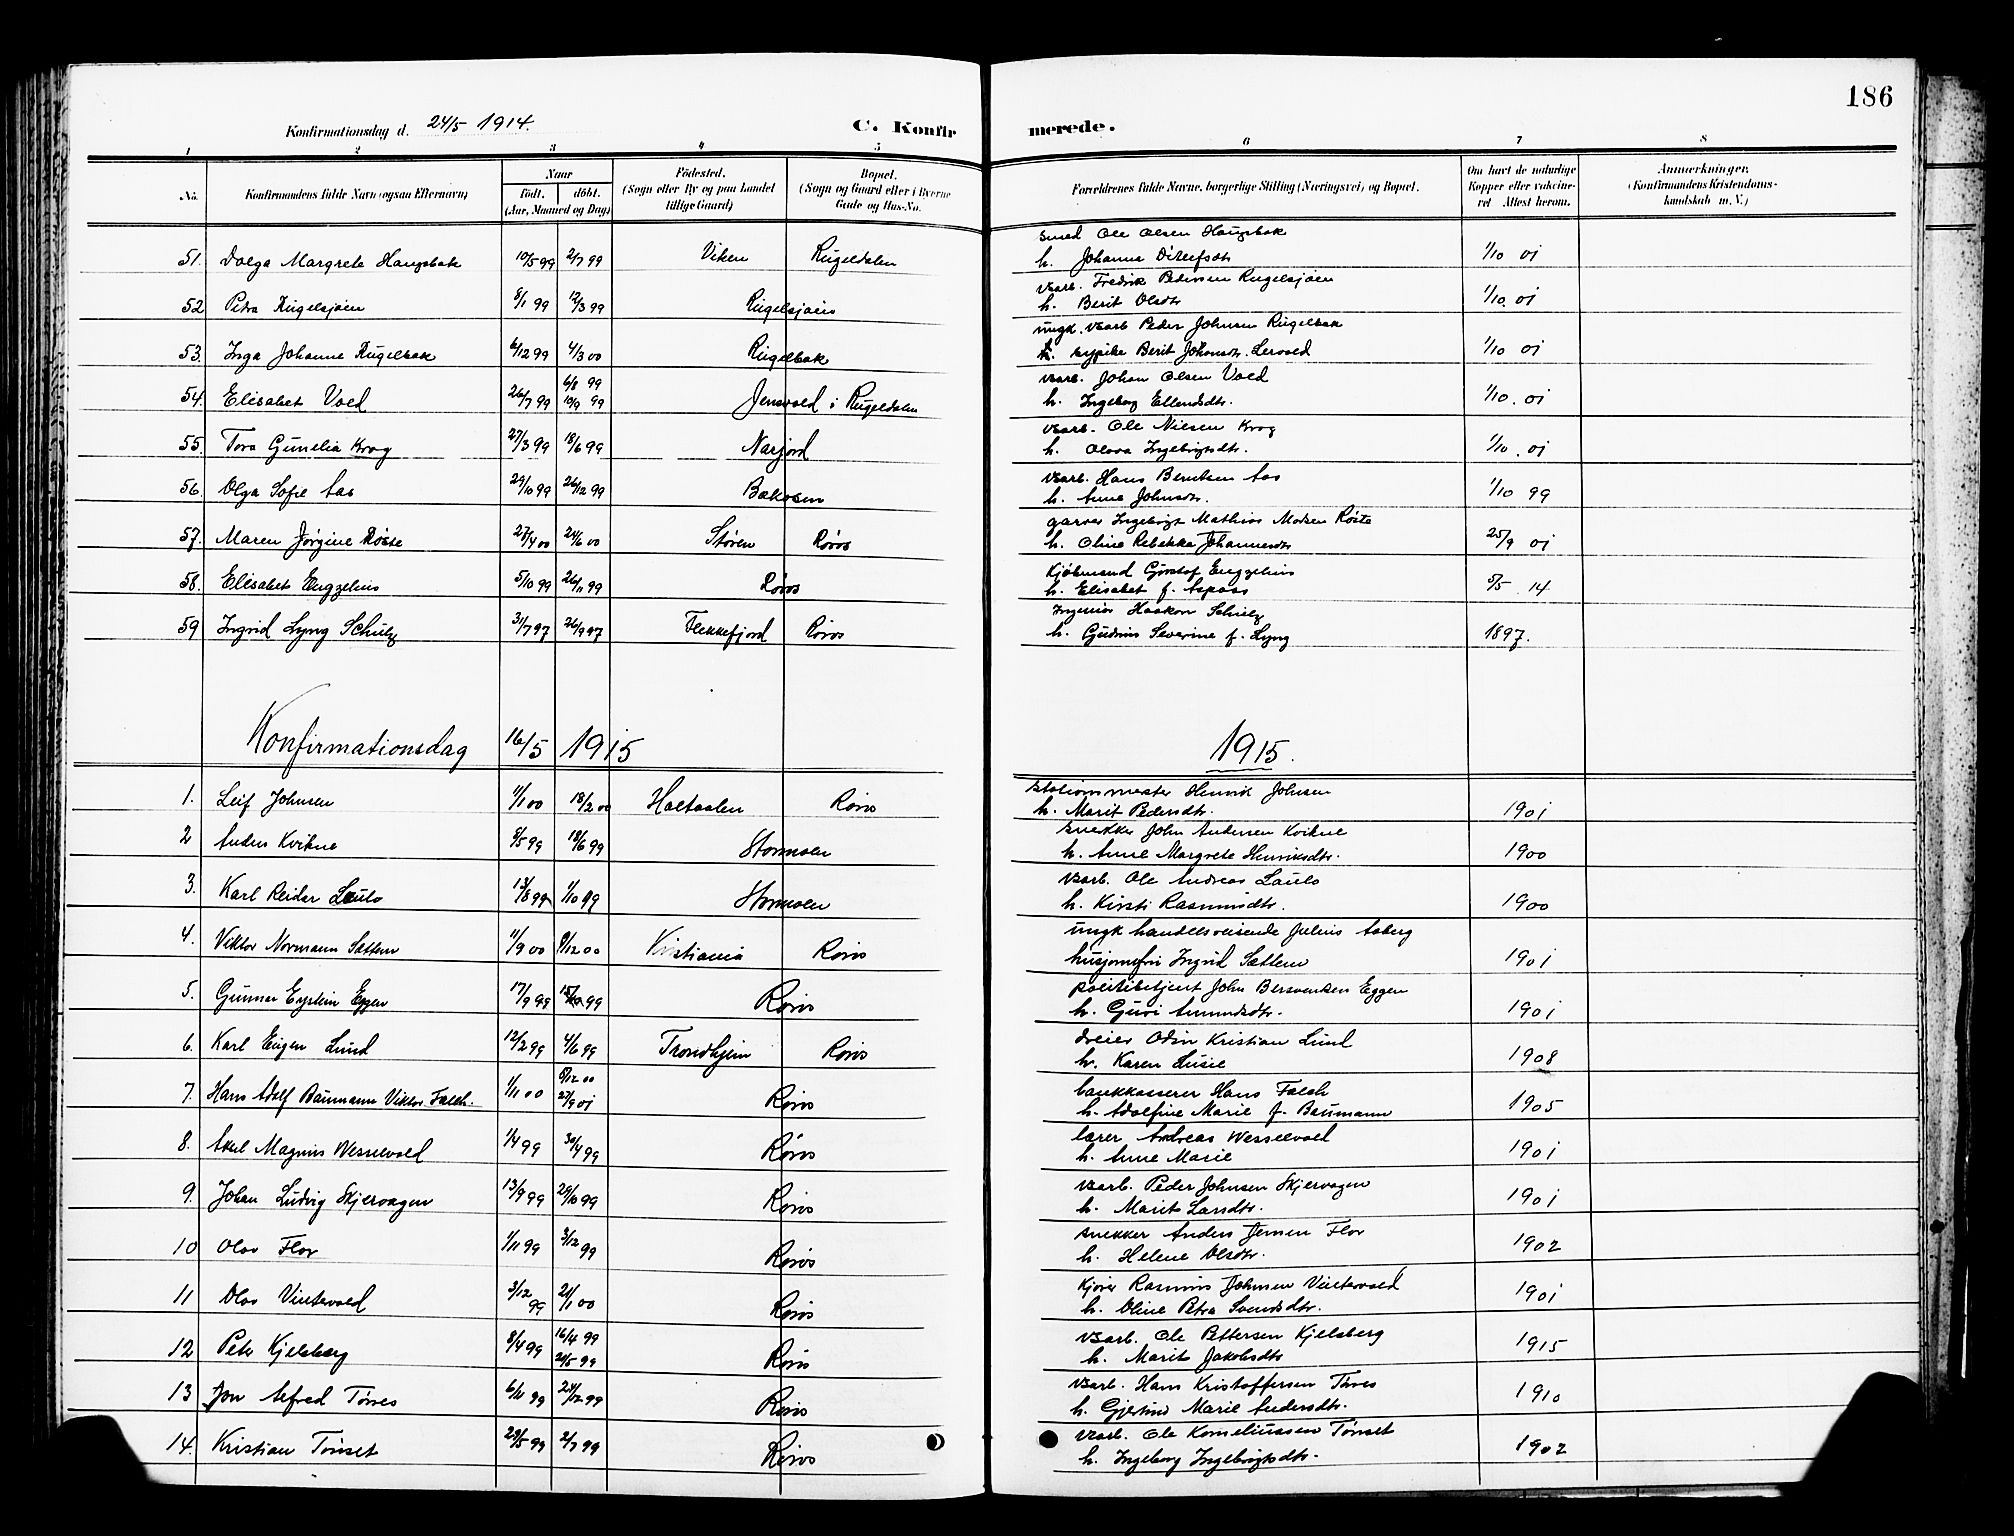 186
Konfirmationsdag d. 24/5 1914. C. Konfirmerede.
1 2 3 4 5 6 7 8
No. Konfirmandens fulde Navn (ogsaa Efternavn) Naar født. døbt. (Aar, Maaned og Dag) Fødested. (Sogn eller By og paa Landet tillige Gaard) Bopæl. (Sogn og Gaard eller i Byerne Gade og Hus-No. Forældrenes fulde Navne, borgerlige Stilling (Næringsvei) og Bopæl. Om havt de naturlige Kopper eller vaccineret. Attest herom. Anmærkninger. (Konfirmandens Kristendomskundskab m. V.)
51. Dolga Margrete Haugsbak 10/5 99 2/7 99 Viken Rugeldalen smed Ole Olsen Haugsbak 1/10 01
h. Johanna Ditlefsdtr
52 Petra Rugelsjøen 8/1 99 12/3 99 Rugelsjøen varb. Fredrik Pedersen Rugelsjøen 1/10. 01
h. Berit Olsdtr
53. Inga Johanne Rugelbak 6/12 99 4/3 00 Rugelbak ungk. varb Peder Johnsen Rugelbak 1/10 01
Berit Johansdtr. Lervold
54. Elisabet Vold 26/7 99 6/8 99 10/9 99 Jensvold i Rugeldalen varb. Johan Olsen Vold 1/10. 01
h. Ingeborg Ellendsdtr.
55. Tora Gunelia Krog 27/3 99 18/6 99 Narjord varb. Ole Nielsen Krog 1/10. 01
h. Olava Ingebrigtsdtr.
56. Olga Sofie Aas 29/10 99 26/12 99 Bakosen varb. Hans Berntsen Aas 1/10 99
h. Anne Johnsdtr.
57. Maren Jørgine Røste 27/4 00 24/6 00 Støren Røros garver Ingebrigt Mathias Madsen Røste 25/9 01
h. Oline Rebekka Johannesdtr
58. Elisabet Engzelius 5/10 99 26/11 99 Røros Kjøbmand Gustaf Engzelius 5/5. 14
h. Elisabet f. Aspaas
59 Ingrid Lyng Schulz 31/7 97 26/9 97 Flekkefjord Røros Ingeniør Haakon Schulz 1897.
h. Gudrun Severine f. Lyng
Konfirmationsdag 16/5 1915 1915.
1. Leif Johnsen 11/1 00 18/2 00 Holtaalen Røros Stationsmester Henrik Johnsen 1901
h. Marit Pedersdtr.
2 Anders Kvikne 8/5 99 18/6 99 Stormoen snekker John Andersen Kvikne 1900
h. Anne Margrete Henriksdtr.
3. Karl Reidar Laulo 13/8 99 1/10 99 Stormoen varb. Ole Andreas Laulo 1900
h. Kirsti Rasmusdtr.
4. Viktor Normann Sættem 11/9 00 9/12 00 Kristiania Røros ungk handelsreisende Julius Aaberg 1901
husjomfru Ingrid Sættem
5. Gunnar Eystein Eggen 17/9 99 15/10 99 Røros politibetjent John Bersvendsen Eggen 1901
h. Guri Amundsdtr.
6. Karl Eugen Lund 12/2 99 4/6 99 Trondhjem Røros dreier Odin Kristian Lund 1908
h. Karen Lusie
7. Hans Adolf Baumann Viktor Falch. 1/11 00 9/12 00 27/9 01 Røros bankkasserer Hans Falch 1905
h. Adolfine Marie f. Baumann
8. Aksel Magnus Wesselvold 1/4 99 30/4 99 Røros lærer Andreas Wesselvold 1901
h. Anne Marie
9. Johan Ludvig Skjervagen 13/9 99 29/10 99 Røros varb. Peder Johnsen Skjervagen 1901
h. Marit Larsdtr.
10 Olav Flor 1/11 99 3/12 99 Røros snekker Anders Jensen Flor 1902
h. Helene Olsdtr.
11 Olav Vintervold 3/12 99 21/1 00 Røros Kjører Rasmus Johnsen Vintervold 1901
h. Oline Petra Svendsdtr.
12 Peter Kjelsberg 8/4 99 16/4 99 20/5 99 Røros varb. Ole Pettersen Kjelsberg 1915
h. Marit Jakobsdtr
13 Jon Alfred Tørres 6/11 99 24/12 99 Røros varb. Hans Kristoffersen Tørres 1910
h. Gjertrud Marie Andersdtr.
14. Kristian Tønset 29/5 99 2/7 99 Røros varb. Ole Korneliussen Tønset 1902
h. Ingeborg Ingebrigtsdtr.